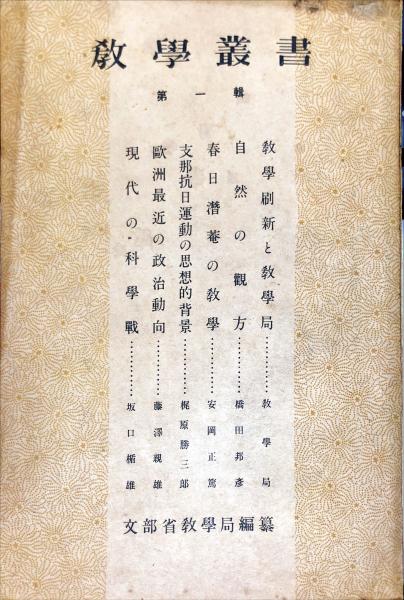 敎學叢書
第一輯
敎學刷新と敎學局…………敎學局
自然の觀方…………橋田邦彥
春日潛菴の敎學…………安岡正篤
支那抗日運動の思想的背景…………梶原勝三郞
歐洲最近の政治動向…………藤澤親雄
現代の科學戰…………坂口楯雄
文部省敎學局編纂